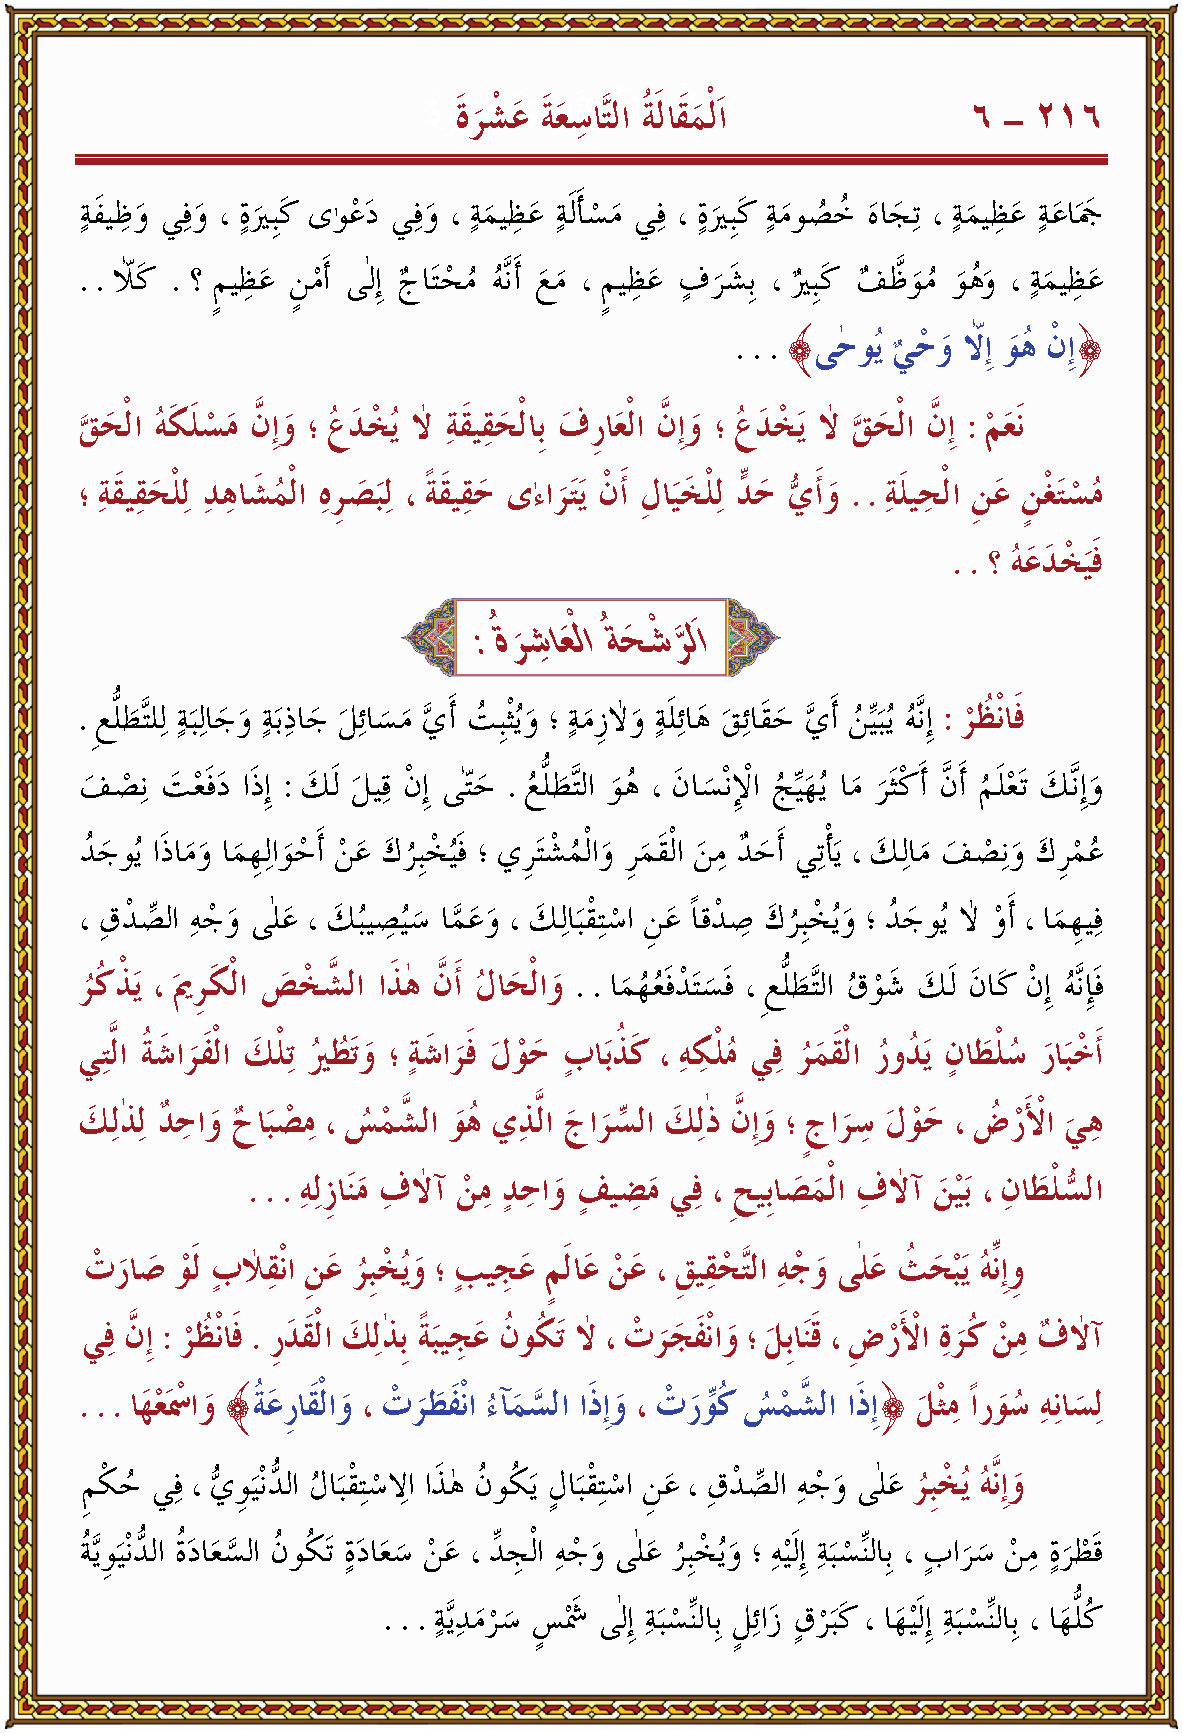 ٢١٦ – ٦ اَلْمَقَالَةُ التَّاسِعَةَ عَشْرَةَ
جَمَاعَةٍ عَظِيمَةٍ ، تِجَاهَ خُصُومَةٍ كَبِيرَةٍ ، فِي مَسْأَلَةٍ عَظِيمَةٍ ، وَفِي دَعْوٰى كَبِيرَةٍ ، وَفِي وَظِيفَةٍ
عَظِيمَةٍ ، وَهُوَ مُوَظَّفٌ كَبِيرٌ ، بِشَرَفٍ عَظِيمٍ ، مَعَ أَنَّهُ مُحْتَاجٌ إِلٰى أَمْنٍ عَظِيمٍ ؟ . كَلاّٰ . .
﴿إِنْ هُوَ إِلاّٰ وَحْيٌ يُوحٰى﴾ . . .
نَعَمْ : إِنَّ الْحَقَّ لاٰ يَخْدَعُ ؛ وَإِنَّ الْعَارِفَ بِالْحَقِيقَةِ لاٰ يُخْدَعُ ؛ وَإِنَّ مَسْلَكَهُ الْحَقَّ
مُسْتَغْنٍ عَنِ الْحِيلَةِ . . وَأَيُّ حَدٍّ لِلْخَيَالِ أَنْ يَتَرَاءٰى حَقِيقَةً ، لِبَصَرِهِ الْمُشَاهِدِ لِلْحَقِيقَةِ ؛
فَيَخْدَعَهُ ؟ . .
اَلرَّشْحَةُ الْعَاشِرَةُ :
فَانْظُرْ : إِنَّهُ يُبَيِّنُ أَيَّ حَقَائِقَ هَائِلَةٍ وَلاٰزِمَةٍ ؛ وَيُثْبِتُ أَيَّ مَسَائِلَ جَاذِبَةٍ وَجَالِبَةٍ لِلتَّطَلُّعِ .
وَإِنَّكَ تَعْلَمُ أَنَّ أَكْثَرَ مَا يُهَيِّجُ الْإِنْسَانَ ، هُوَ التَّطَلُّعُ . حَتّٰى إِنْ قِيلَ لَكَ : إِذَا دَفَعْتَ نِصْفَ
عُمْرِكَ وَنِصْفَ مَالِكَ ، يَأْتِي أَحَدٌ مِنَ الْقَمَرِ وَالْمُشْتَرِي ؛ فَيُخْبِرُكَ عَنْ أَحْوَالِهِمَا وَمَاذَا يُوجَدُ
فِيهِمَا ، أَوْ لاٰ يُوجَدُ ؛ وَيُخْبِرُكَ صِدْقاً عَنِ اسْتِقْبَالِكَ ، وَعَمَّا سَيُصِيبُكَ ، عَلٰى وَجْهِ الصِّدْقِ ،
فَإِنَّهُ إِنْ كَانَ لَكَ شَوْقُ التَّطَلُّعِ ، فَسَتَدْفَعُهُمَا . . وَالْحَالُ أَنَّ هٰذَا الشَّخْصَ الْكَرِيمَ ، يَذْكُرُ
أَخْبَارَ سُلْطَانٍ يَدُورُ الْقَمَرُ فِي مُلْكِهِ ، كَذُبَابٍ حَوْلَ فَرَاشَةٍ ؛ وَتَطِيرُ تِلْكَ الْفَرَاشَةُ الَّتِي
هِيَ الْأَرْضُ ، حَوْلَ سِرَاجٍ ؛ وَإِنَّ ذٰلِكَ السِّرَاجَ الَّذِي هُوَ الشَّمْسُ ، مِصْبَاحٌ وَاحِدٌ لِذٰلِكَ
السُّلْطَانِ ، بَيْنَ آلاٰفِ الْمَصَابِيحِ ، فِي مَضِيفٍ وَاحِدٍ مِنْ آلاٰفِ مَنَازِلِهِ . . .
وِإِنَّهُ يَبْحَثُ عَلٰى وَجْهِ التَّحْقِيقِ ، عَنْ عَالَمٍ عَجِيبٍ ؛ وَيُخْبِرُ عَنِ انْقِلاٰبٍ لَوْ صَارَتْ
آلاٰفٌ مِنْ كُرَةِ الْأَرْضِ ، قَنَابِلَ ؛ وَانْفَجَرَتْ ، لاٰ تَكُونُ عَجِيبَةً بِذٰلِكَ الْقَدَرِ . فَانْظُرْ : إِنَّ فِي
لِسَانِهِ سُوَراً مِثْلَ ﴿إِذَا الشَّمْسُ كُوِّرَتْ ، وَإِذَا السَّمَآءُ انْفَطَرَتْ ، وَالْقَارِعَةُ﴾ وَاسْمَعْهَا . . .
وَإِنَّهُ يُخْبِرُ عَلٰى وَجْهِ الصِّدْقِ ، عَنِ اسْتِقْبَالٍ يَكُونُ هٰذَا الِاسْتِقْبَالُ الدُّنْيَوِيُّ ، فِي حُكْمِ
قَطْرَةٍ مِنْ سَرَابٍ ، بِالنِّسْبَةِ إِلَيْهِ ؛ وَيُخْبِرُ عَلٰى وَجْهِ الْجِدِّ ، عَنْ سَعَادَةٍ تَكُونُ السَّعَادَةُ الدُّنْيَوِيَّةُ
كُلُّهَا ، بِالنِّسْبَةِ إِلَيْهَا ، كَبَرْقٍ زَائِلٍ بِالنِّسْبَةِ إِلٰى شَمْسٍ سَرْمَدِيَّةٍ . . .